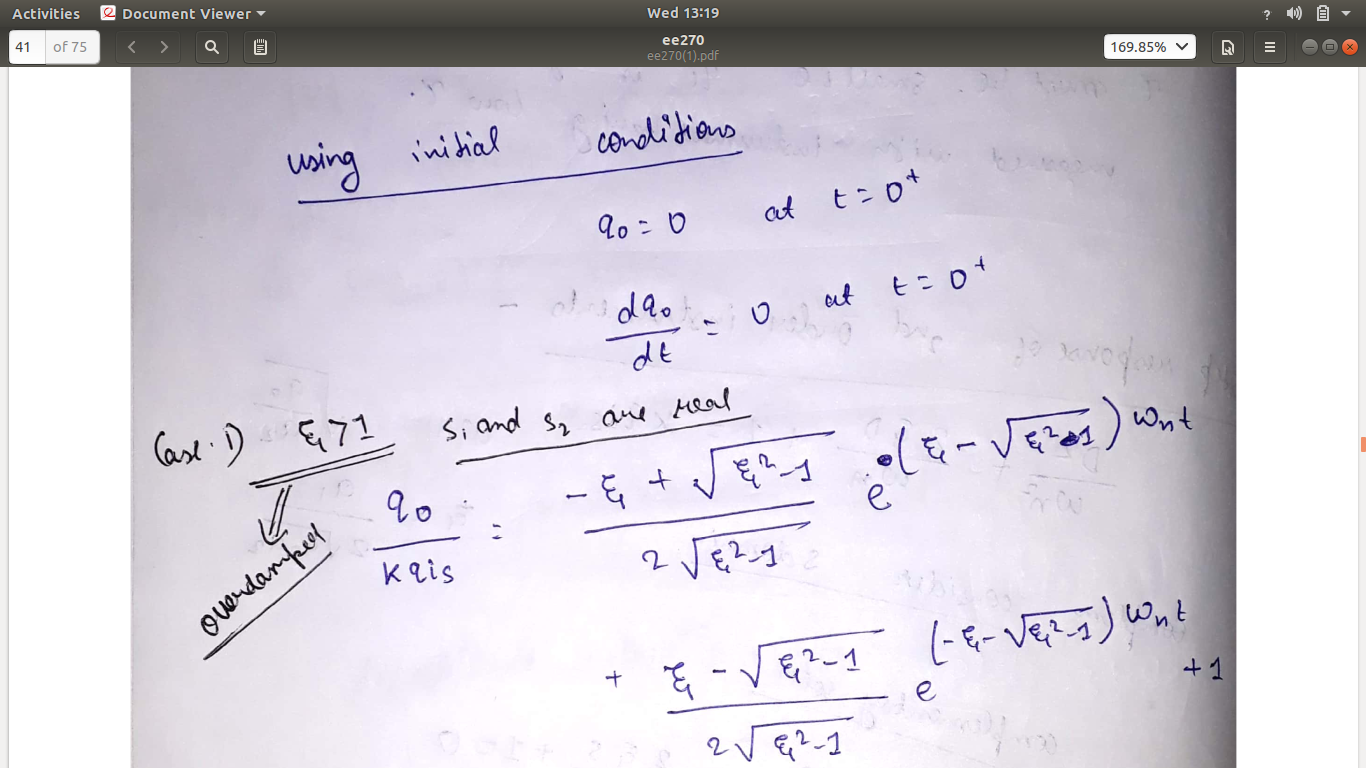 Activities Document Viewer Wed 13:19 ?
41 of 75 ee270 169.85%
ee270(1).pdf
using initial conditions
q₀ = 0 at t = 0⁺
dq₀/dt = 0 at t = 0⁺
Case. 1) ξ > 1 s₁ and s₂ are real
overdamped
q₀/Kqis = (-ξ + √(ξ²-1))/(2√(ξ²-1)) e^(ξ - √(ξ²-1))ωₙt
+ (ξ - √(ξ²-1))/(2√(ξ²-1)) e^(-ξ - √(ξ²-1))ωₙt + 1